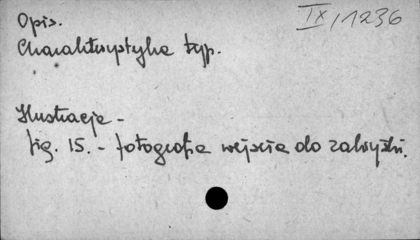 Opis.
IX/1236
Charakterystyka typ.
Ilustracja -
fig. 15. - fotografia wejścia do zakrystii.